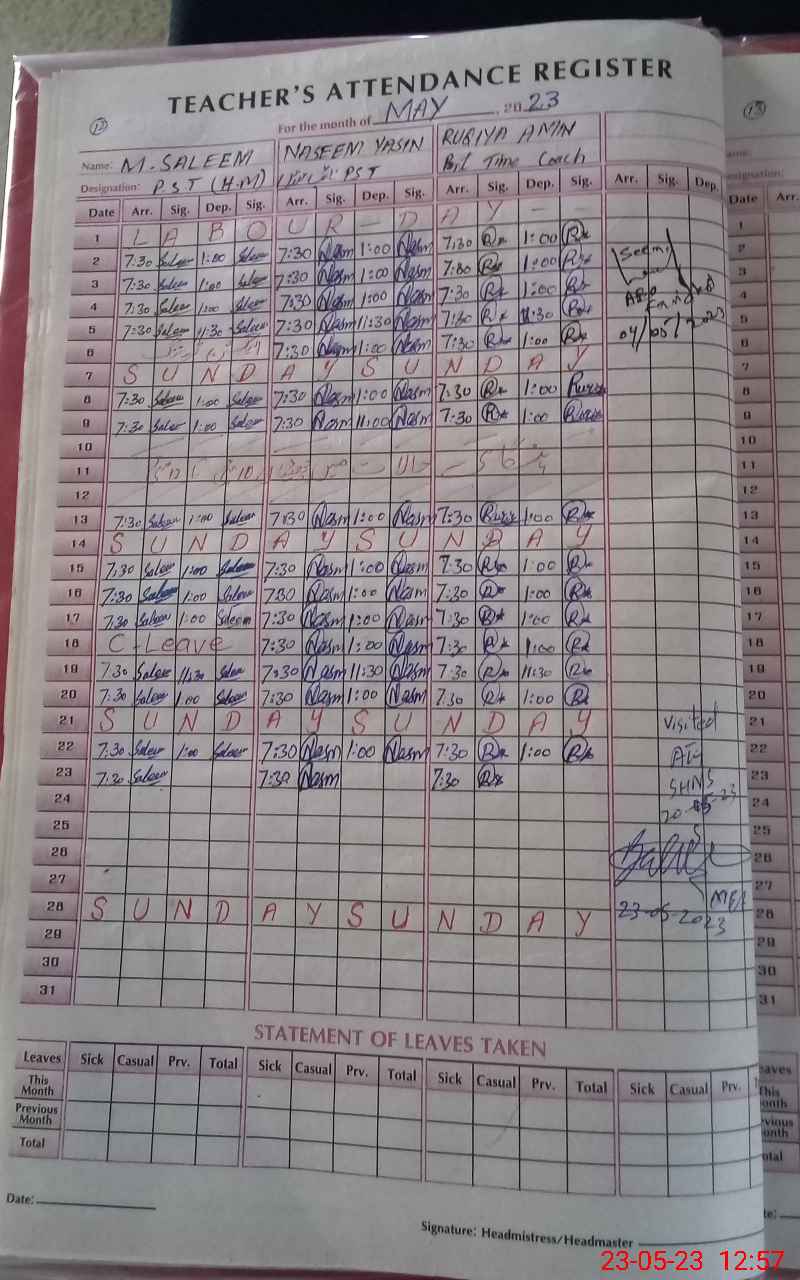 TEACHER'S ATTENDANCE REGISTER
For the month of MAY , 2023
Name: M. SALEEM NASEEM YASIN RUQIYA AMIN
Designation: PST (H.M) PST Part Time Coach
Date Arr. Sig. Dep. Sig. Arr. Sig. Dep. Sig. Arr. Sig. Dep. Sig. Arr. Sig. Dep.
1 L A B O U R - D A Y - -
2 7:30 Saleem 1:00 Saleem 7:30 Nasm 1:00 Nasm 7:30 R 1:00 R
3 7:30 Saleem 1:00 Saleem 7:30 Nasm 1:00 Nasm 7:30 R 1:00 R
4 7:30 Saleem 1:00 Saleem 7:30 Nasm 1:00 Nasm 7:30 R 1:00 R
5 7:30 Saleem 11:30 Saleem 7:30 Nasm 11:30 Nasm 7:30 R 11:30 R
6 7:30 Nasm 1:00 Nasm 7:30 R 1:00 R
04/05/2023
7 S U N D A Y S U N D A Y
8 7:30 Saleem 1:00 Saleem 7:30 Nasm 1:00 Nasm 7:30 R 1:00
9 7:30 Saleem 1:00 Saleem 7:30 Nasm 11:00 Nasm 7:30 R 1:00
10
11
12
13 7:30 Saleem 1:00 Saleem 7:30 Nasm 1:00 Nasm 7:30 1:00 R
14 S U N D A Y S U N D A Y
15 7:30 Saleem 1:00 Saleem 7:30 Nasm 1:00 Nasm 7:30 R 1:00 R
16 7:30 Saleem 1:00 Saleem 7:30 Nasm 1:00 Nasm 7:30 R 1:00 R
17 7:30 Saleem 1:00 Saleem 7:30 Nasm 1:00 Nasm 7:30 R 1:00 R
18 C-Leave 7:30 Nasm 1:00 Nasm 7:30 R 1:00 R
19 7:30 Saleem 11:30 Saleem 7:30 Nasm 11:30 Nasm 7:30 R 11:30 R
20 7:30 Saleem 1:00 Saleem 7:30 Nasm 1:00 Nasm 7:30 R 1:00 R
21 S U N D A Y S U N D A Y visited
22 7:30 Saleem 1:00 Saleem 7:30 Nasm 1:00 Nasm 7:30 R 1:00 R
23 7:30 Saleem 7:30 Nasm 7:30 R
24 20-05-23
25
26
27
28 S U N D A Y S U N D A Y 23-05-2023
29
30
31
STATEMENT OF LEAVES TAKEN
Leaves Sick Casual Prv. Total Sick Casual Prv. Total Sick Casual Prv. Total Sick Casual Prv.
This Month
Previous Month
Total
Date:
Signature: Headmistress/Headmaster
23-05-23 12:57